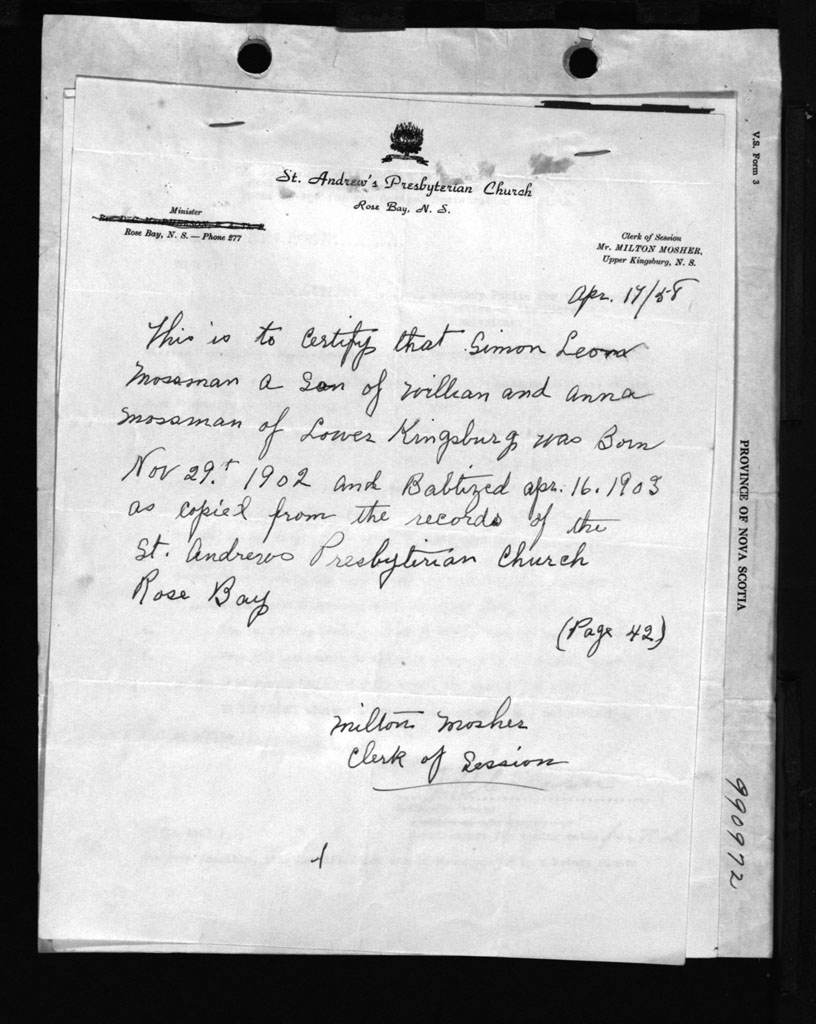 St. Andrew's Presbyterian Church
Rose Bay, N. S.
Minister
Rose Bay, N. S. — Phone 277
Clerk of Session
Mr. MILTON MOSHER,
Upper Kingsburg, N. S.
Apr. 17/58
This is to Certify that Simon Leon
Mossman a Son of Willian and Anna
Mossman of Lower Kingsburg was Born
Nov 29.t 1902 and Babtized Apr. 16. 1903
as copied from the records of the
St. Andrews Presbyterian Church
Rose Bay
(Page 42)
Milton Mosher
Clerk of Session
V.S. Form 3
PROVINCE OF NOVA SCOTIA
990972